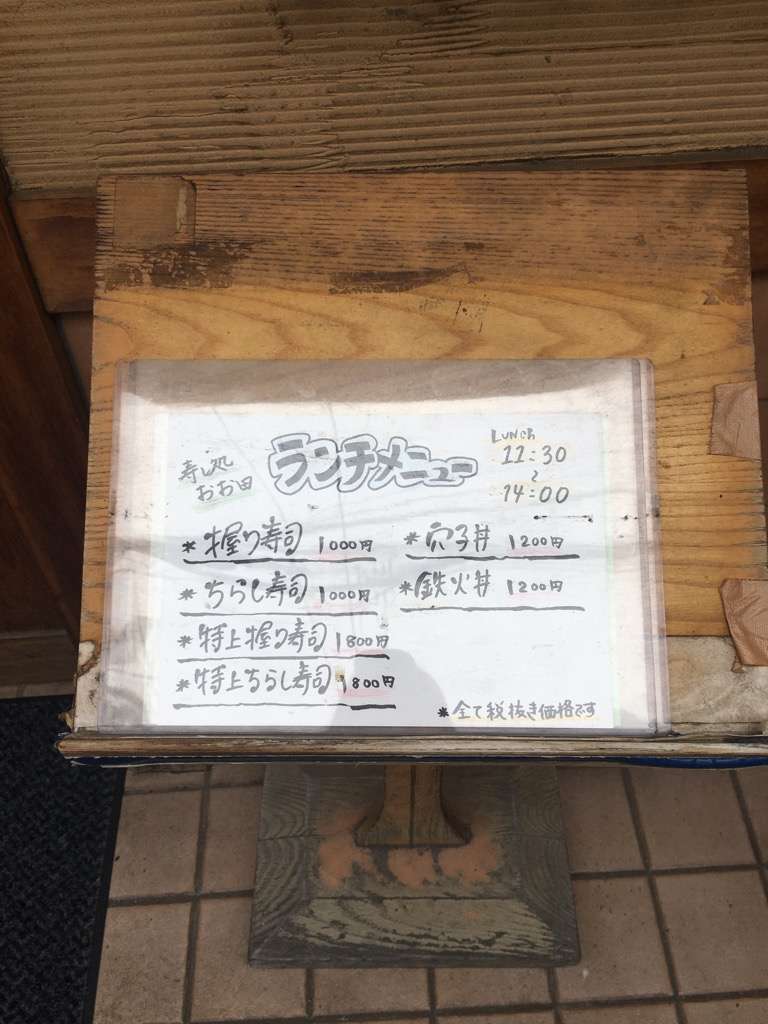 寿し処
おお田
ランチメニュー
LUNCH
11:30
~
14:00
*握り寿司 1000円
*ちらし寿司 1000円
*特上握り寿司 1800円
*特上ちらし寿司 1800円
*穴子丼 1200円
*鉄火丼 1200円
*全て税抜き価格です